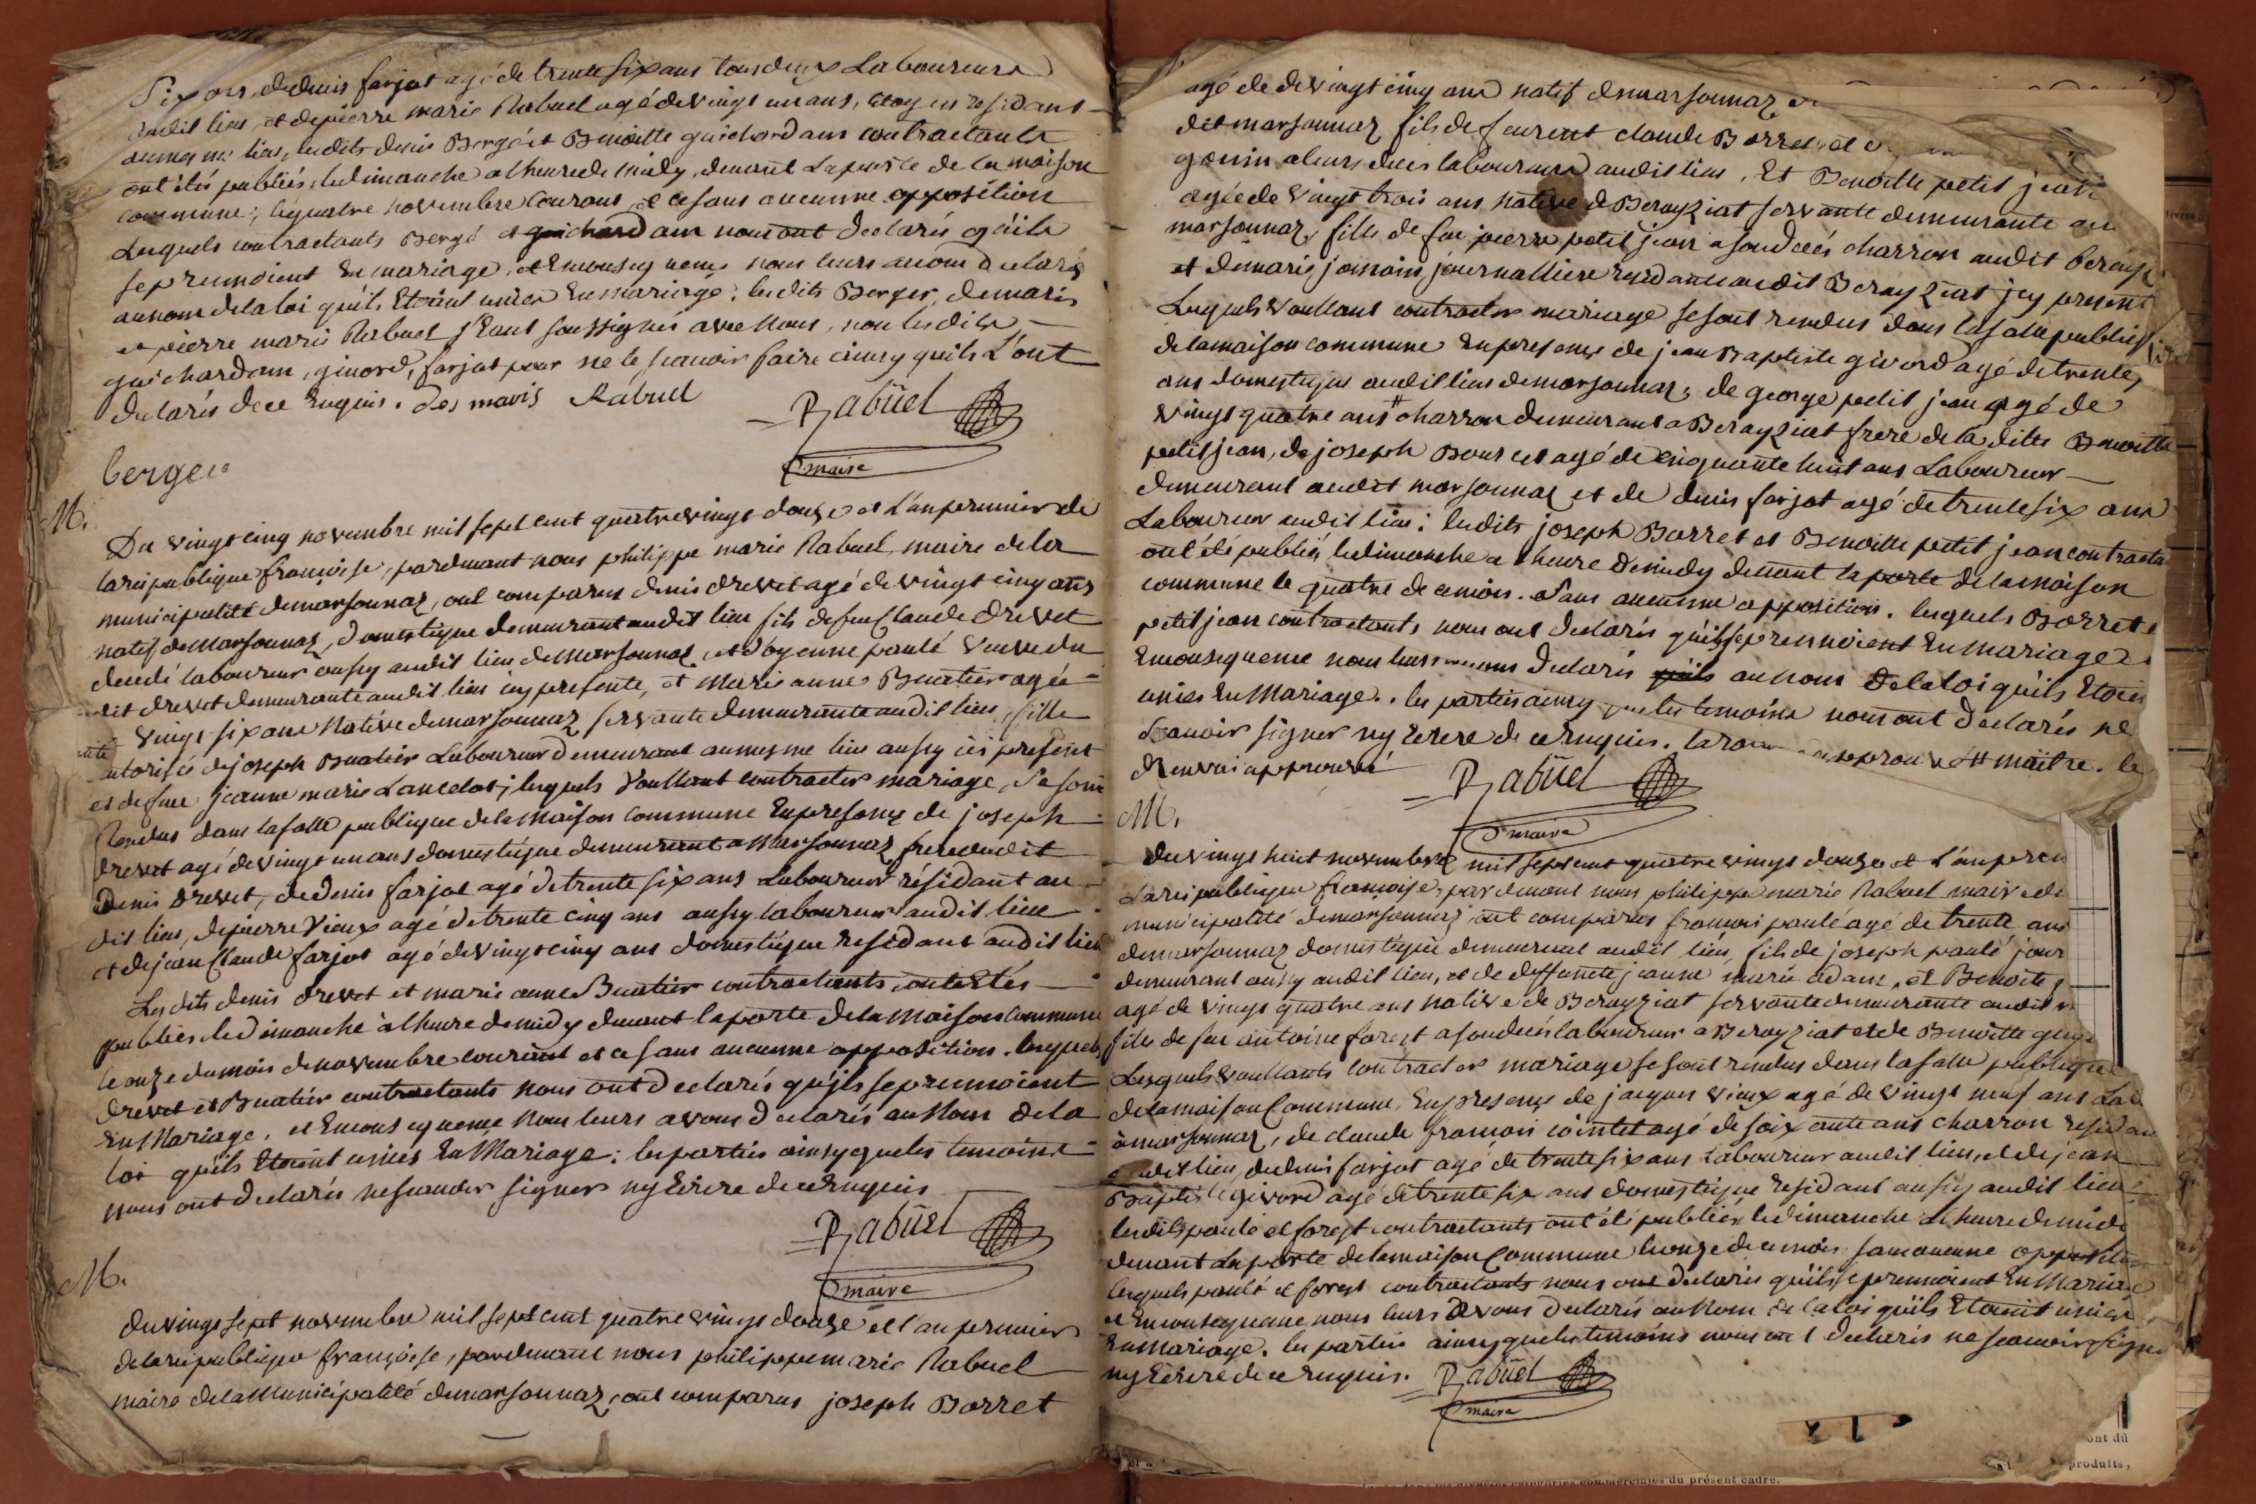 Six ans, de denis farjot agé de trente six ans tous deux Laboureurs
audit lieu, et de pierre marie Rabuel agé de vingt un ans, citoyens residants
au mesme lieu, lesdits denis Bergé et Benoitte guichardam contractants
ont étés publiés, le dimanche a lheure de midy, devant La porte de la maison
commune, le quatre novembre courant, et ce sans aucunne opposition
Lesquels contractants Bergé et guichardam nous ont declarés qu'ils
se prennoient En mariage, et Enconsequence nous leurs avons declarés
au nom de la loi qu'ils Etoient unies En mariage; lesdits Berger, demaris
et pierre marie Rabuel s'Etant soussignés avec Nous, non lesdits
guichardam, givord, farjot pour ne le scavoir faire ainsy qu'ils L'ont
declarés de ce Enquis. des maris Rabuel Rabüel
maire
berger
M.
Du vingt cinq novembre mil sept cent quatre vingt douze et L'an premier de
la republique françoise, pardevant nous philippe marie Rabuel, maire de la
municipalité de marsonnaz, ont comparus denis drevet agé de vingt cinq ans
natif de Marsonnaz, domestique demeurant audit lieu fils de feu Claude drevet
decedé laboureur aussy audit lieu de Marsonnaz, et d'oyenne paulé veuve du
dit drevet demeurante audit lieu icy presente, et Marie anne Buatier agée
vingt six ans Native de marsonnaz servante demeurante audit lieu, fille
autorisée de joseph Buatier Laboureur demeurant au mesme lieu aussy ici present
et de feue jeanne marie Lancelot; lesquels Voullant contracter mariage, Se sont
Rendus dans la salle publique de la Maison commune En presence de joseph
drevet agé de vingt un ans domestique demeurant a Marsonnaz frere dudit
Denis drevet, de denis farjot agé de trente six ans Laboureur résidant au
dit lieu, de pierre Vieux agé de trente cinq ans aussy laboureur audit lieu
et de jean Claude farjot agé de vingt cinq ans domestique residant audit lieu
Lesdits denis drevet et marie anne Buatier contractants ont Etés
publiés le dimanche à lheure de midy devant la porte de la Maison commune
le onze du mois de novembre courant et ce sans aucunne opposition. lesquels
drevet et Buatier contractants nous ont declarés qu'ils se prennoient
En Mariage, et Enconsequence Nous leurs avons declarés au Nom de la
loi qu'ils Etoient uniés En Mariage: les parties ainsy que les temoins
nous ont declarés ne scavoir signer ny Ecrire de ce Enquis
Rabüel
maire
M.
du vingt sept novembre mil sept cent quatre vingt douze et l'an premier
de la republique françoise, pardevant nous philippe marie Rabuel
maire de la Municipalité de marsonnaz, ont comparus joseph Borret
agé de vingt cinq ans natif de marsonnaz
dit marsonnaz fils de feu claude Borret et
gonin a leurs deces laboureurs audit lieu, Et Benoitte petit jean
agée de vingt trois ans, native de Berayziat servante demeurante au
marsonnaz, fille de feu pierre petit jean a son deces charron audit berayz
et de marie jomain journalliere residante audit Berayziat icy present
Lesquels voullant contracter mariage se sont rendus dans la salle publique
de la maison commune En presence de jean Baptiste givord agé de trente
ans domestique audit lieu de marsonnaz, de george petit jean agé de
vingt quatre ans # charron demeurant a Berayziat frere de la dite Benoitte
petit jean, de joseph agé de cinquante huit ans Laboureur
demeurant audit marsonnaz et de denis farjot agé de trente six ans
Laboureur audit lieu; lesdits joseph Borret et Benoitte petit jean contracta
ont été publiés le dimanche a lheure de midy devant la porte de la maison
commune le quatre de ce mois. Sans aucunne opposition. lesquels Borret
petit jean contractants nous ont declarés qu'ils se prennoient En mariage
Enconsequence nous leurs avons declarés qu'ils au nom de la loi qu'ils Etoien
unies En Mariage. les parties ainsy que les temoins nous ont declarés ne
scavoir signer ny Ecrire de ce Enquis. approuvé # maitre. le
Renvoi approuvé Rabüel
maire
M.
du vingt huit novembre mil sept cent quatre vingt douze et L'an prem
La republique françoise, pardevant nous philippe marie Rabuel maire de
municipalité de marsonnaz, ont comparus françois paulé agé de trente ans
de marsonnaz domestique demeurant audit lieu, fils de joseph paulé jour
demeurant aussy audit lieu, et de deffunte jeanne marie adam, et Benoite
agé de vingt quatre ans native de Berayziat servante demeurante audit
fille de feu antoine forest a son deces laboureur a Berayziat et de Benoitte
Lesquels voullants contracter mariage se sont rendus dans la salle publique
de la maison Commune, En presence de jacques vieux agé de vingt neuf ans Lab
à marsonnaz, de claude françois cointet agé de soixante ans charron residan
audit lieu, de denis farjot agé de trente six ans laboureur audit lieu, et de jean
Baptiste givord agé de trente six ans domestique residant aussy audit lieu
lesdits paulé et forest contractants ont été publiés le dimanche Lheure de midi
devant la porte de la maison Commune le onze de ce mois sans aucunne opposition
lesquels paulé et forest contractants nous ont declarés qu'ils se prennoient En Mariage
et Enconsequence nous leurs avons declarés au Nom de la loi qu'ils Etoient unies
En mariage. les parties ainsy que les temoins nous ont declarés ne scavoir signe
ny Ecrire de ce Enquis. Rabüel
maire
ont dû
produits,
du présent cadre.